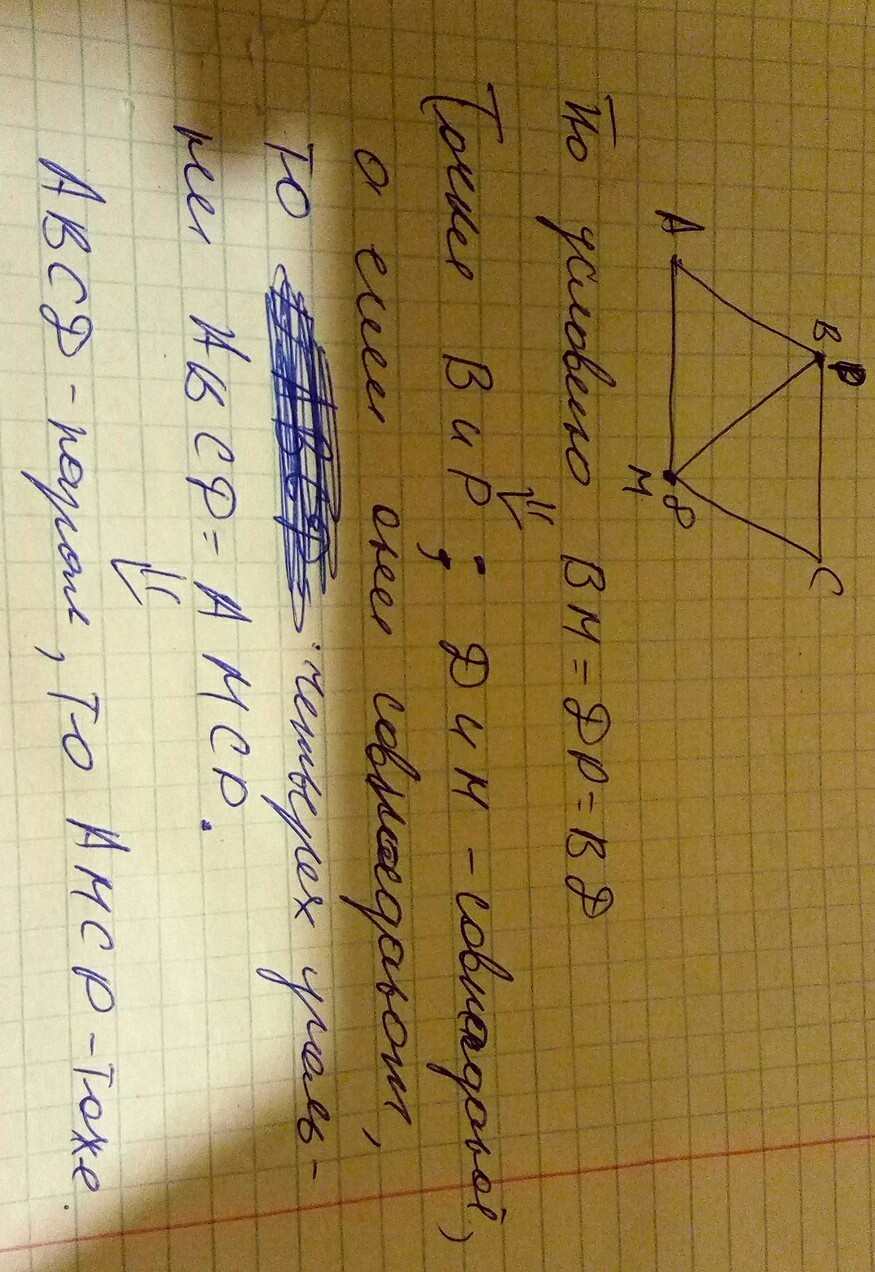 B P
A
C
M D
По условию BM = DP = BD
⇓
Точки B и P ; D и M - совпадают,
а если они совпадают,
то четырехуголь-
ники ABCD = AMCP.
⇓
ABCD - парал, то AMCP - тоже.